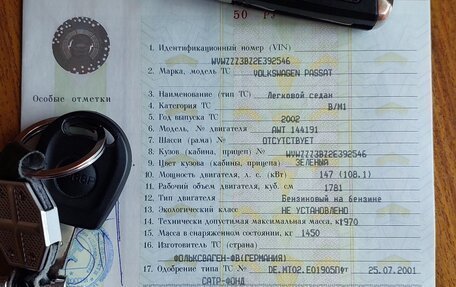 50 РУ
Особые отметки
1. Идентификационный номер (VIN)
WVWZZZ3BZ2E392546
2. Марка, модель ТС VOLKSWAGEN PASSAT
3. Наименование (тип ТС) Легковой седан
4. Категория ТС B/M1
5. Год выпуска ТС 2002
6. Модель, № двигателя AWT 144191
7. Шасси (рама) № ОТСУТСТВУЕТ
8. Кузов (кабина, прицеп) № WVWZZZ3BZ2E392546
9. Цвет кузова (кабины, прицепа) ЗЕЛЕНЫЙ
10. Мощность двигателя, л. с. (кВт) 147 (108.1)
11. Рабочий объем двигателя, куб. см 1781
12. Тип двигателя Бензиновый на бензине
13. Экологический класс НЕ УСТАНОВЛЕНО
14. Технически допустимая максимальная масса, кг 1970
15. Масса в снаряженном состоянии, кг 1450
16. Изготовитель ТС (страна)
ФОЛЬКСВАГЕН-ФВ(ГЕРМАНИЯ)
17. Одобрение типа ТС № DE.MT02.E01905Пфт 25.07.2001
САТР-ФОНД